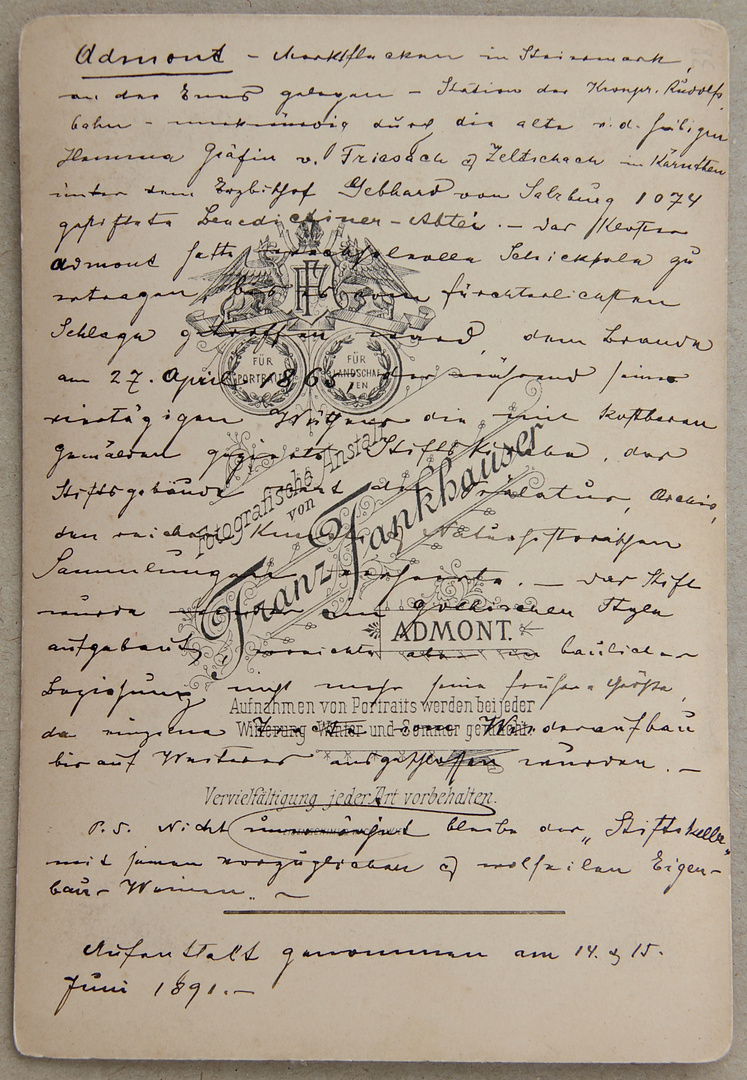 Admont – Marktflecken in Steiermark,
an der Enns gelegen – Station der Kronpr. Rudolfs
bahn – merkwürdig durch die alte v. d. heiligen
Hemma Gräfin v. Friesach & Zeltschach in Kärnthen
unter dem Erzbischof Gebhard von Salzburg 1074
gestiftete Benedictiner-Abtei. – Das Kloster
Admont hatte wechselvolle Schicksale zu
ertragen, bis es vom fürchterlichsten
Schlage getroffen ward, dem Brande
am 27. April 1865, der während seines
viertägigen Wüthens die mit kostbaren
Gemälden gezierte Stiftskirche, das
Stiftsgebäude samt der Prälatur, Archiv,
den reichen Kunst & Naturhistorischen
Sammlungen verheerte. – Das Stift
wurde im gothischen Style
aufgebaut, erreichte aber in baulicher
Beziehung nicht mehr seine frühere Größe,
da einzelne Tracte vom Wiederaufbau
bis auf Weiteres ausgeschlossen wurden. –
P.S. Nicht unerwähnt bleibe der „Stiftskeller"
mit seinen vorzüglichen & wolfeilen Eigen-
bau-Weinen. –
Aufenthalt genommen am 14. & 15.
Juni 1891. –
FF
FÜR PORTRAITS
FÜR LANDSCHAFTEN
Fotografische Anstalt
von
Franz Fankhauser
ADMONT.
Aufnahmen von Portraits werden bei jeder
Witterung Winter und Sommer gemacht.
Vervielfältigung jeder Art vorbehalten.